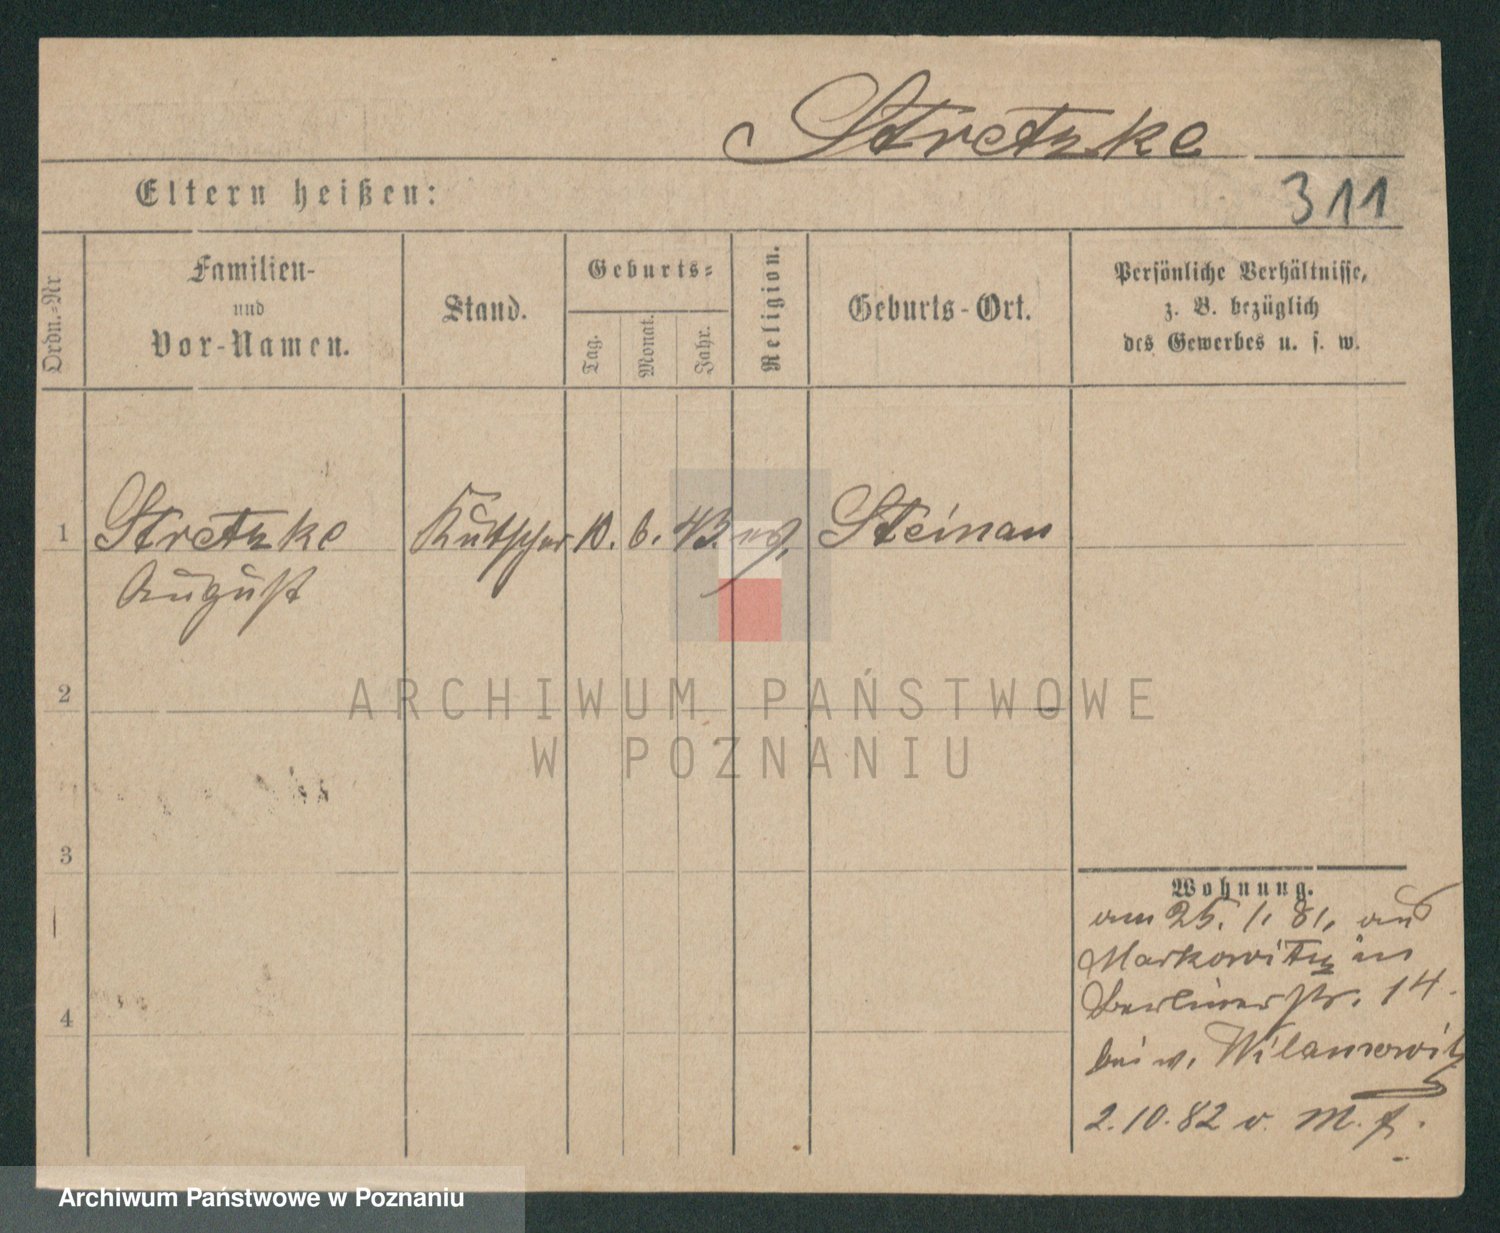 Stretzke
Eltern heißen:
311
Ordn.-Nr
Familien-
und
Vor-Namen.
Stand.
Geburts-
Tag.
Monat.
Jahr.
Religion.
Geburts-Ort.
Persönliche Verhältnisse,
z. B. bezüglich
des Gewerbes u. s. w.
1
Stretzke
August
Kutscher
10.
6.
43.
ev.
Steinau
2
3
4
Wohnung.
am 25. 1. 81, aus
Markowitz in
Berlinerstr. 14.
bei v. Wilamowitz
2. 10. 82 v. M.
ARCHIWUM PAŃSTWOWE
W POZNANIU
Archiwum Państwowe w Poznaniu